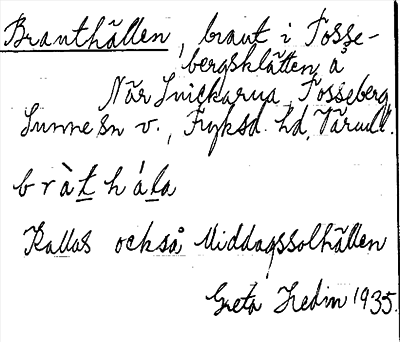 Branthällen, brant i Fosse-
bergsklätten å
När Snickarna, Fosseberg,
Sunne sn v., Fryksd. hd, Värml.
bràt hála
Kallas också Middagssolhällen
Greta Hedin 1935.